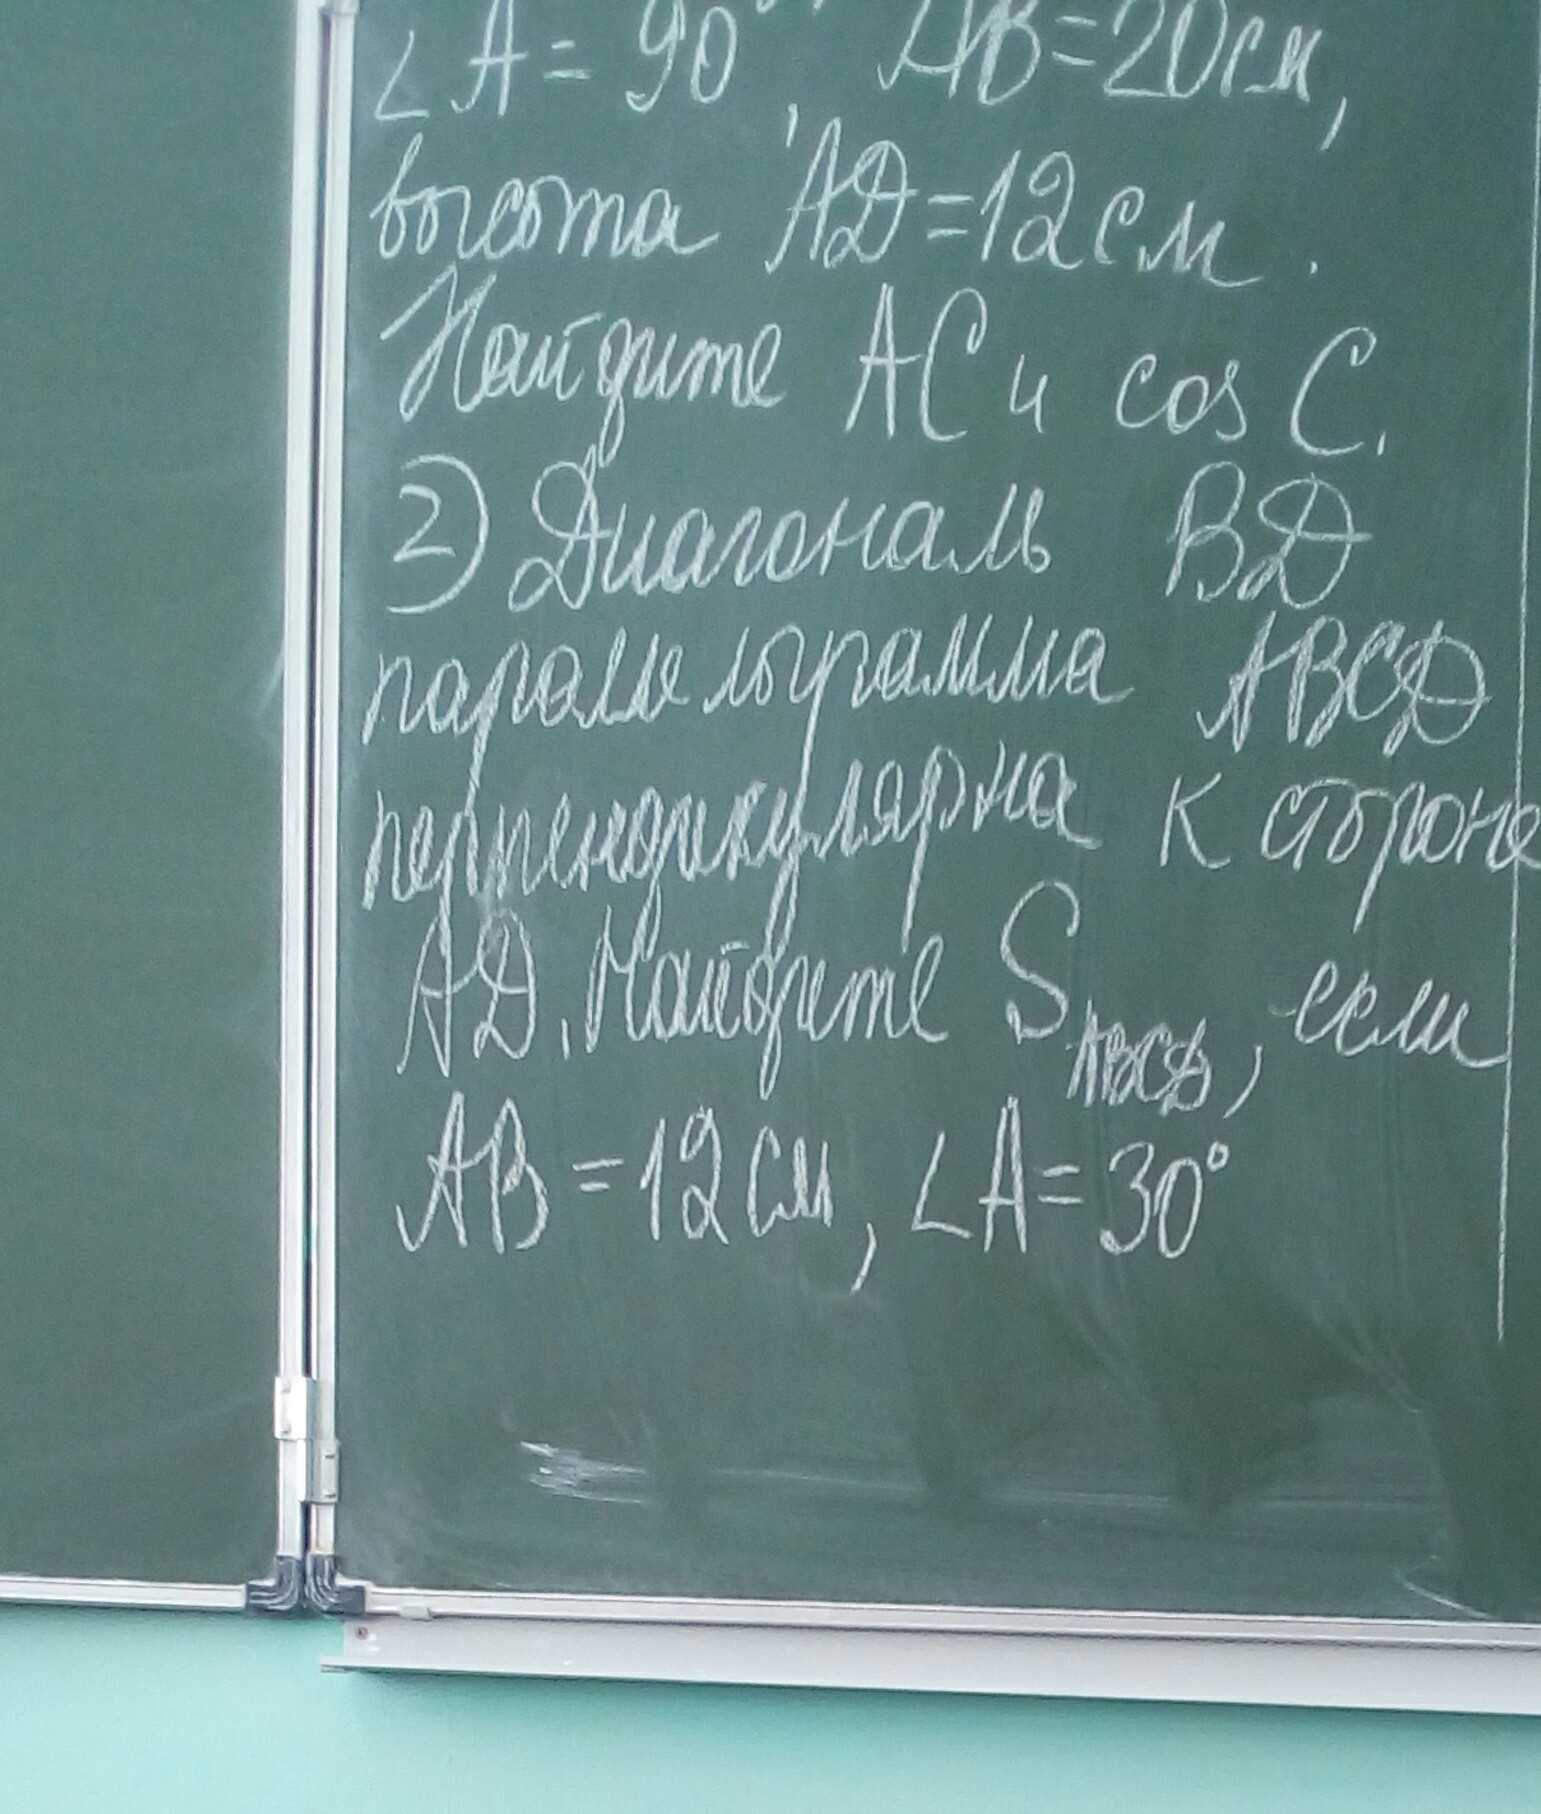 ∠A = 90°, AB = 20см,
высота AD = 12см.
Найдите AC и cos C.
2) Диагональ BD
параллелограмма ABCD
перпендикулярна к стороне
AD. Найдите S ABCD, если
AB = 12 см, ∠A = 30°